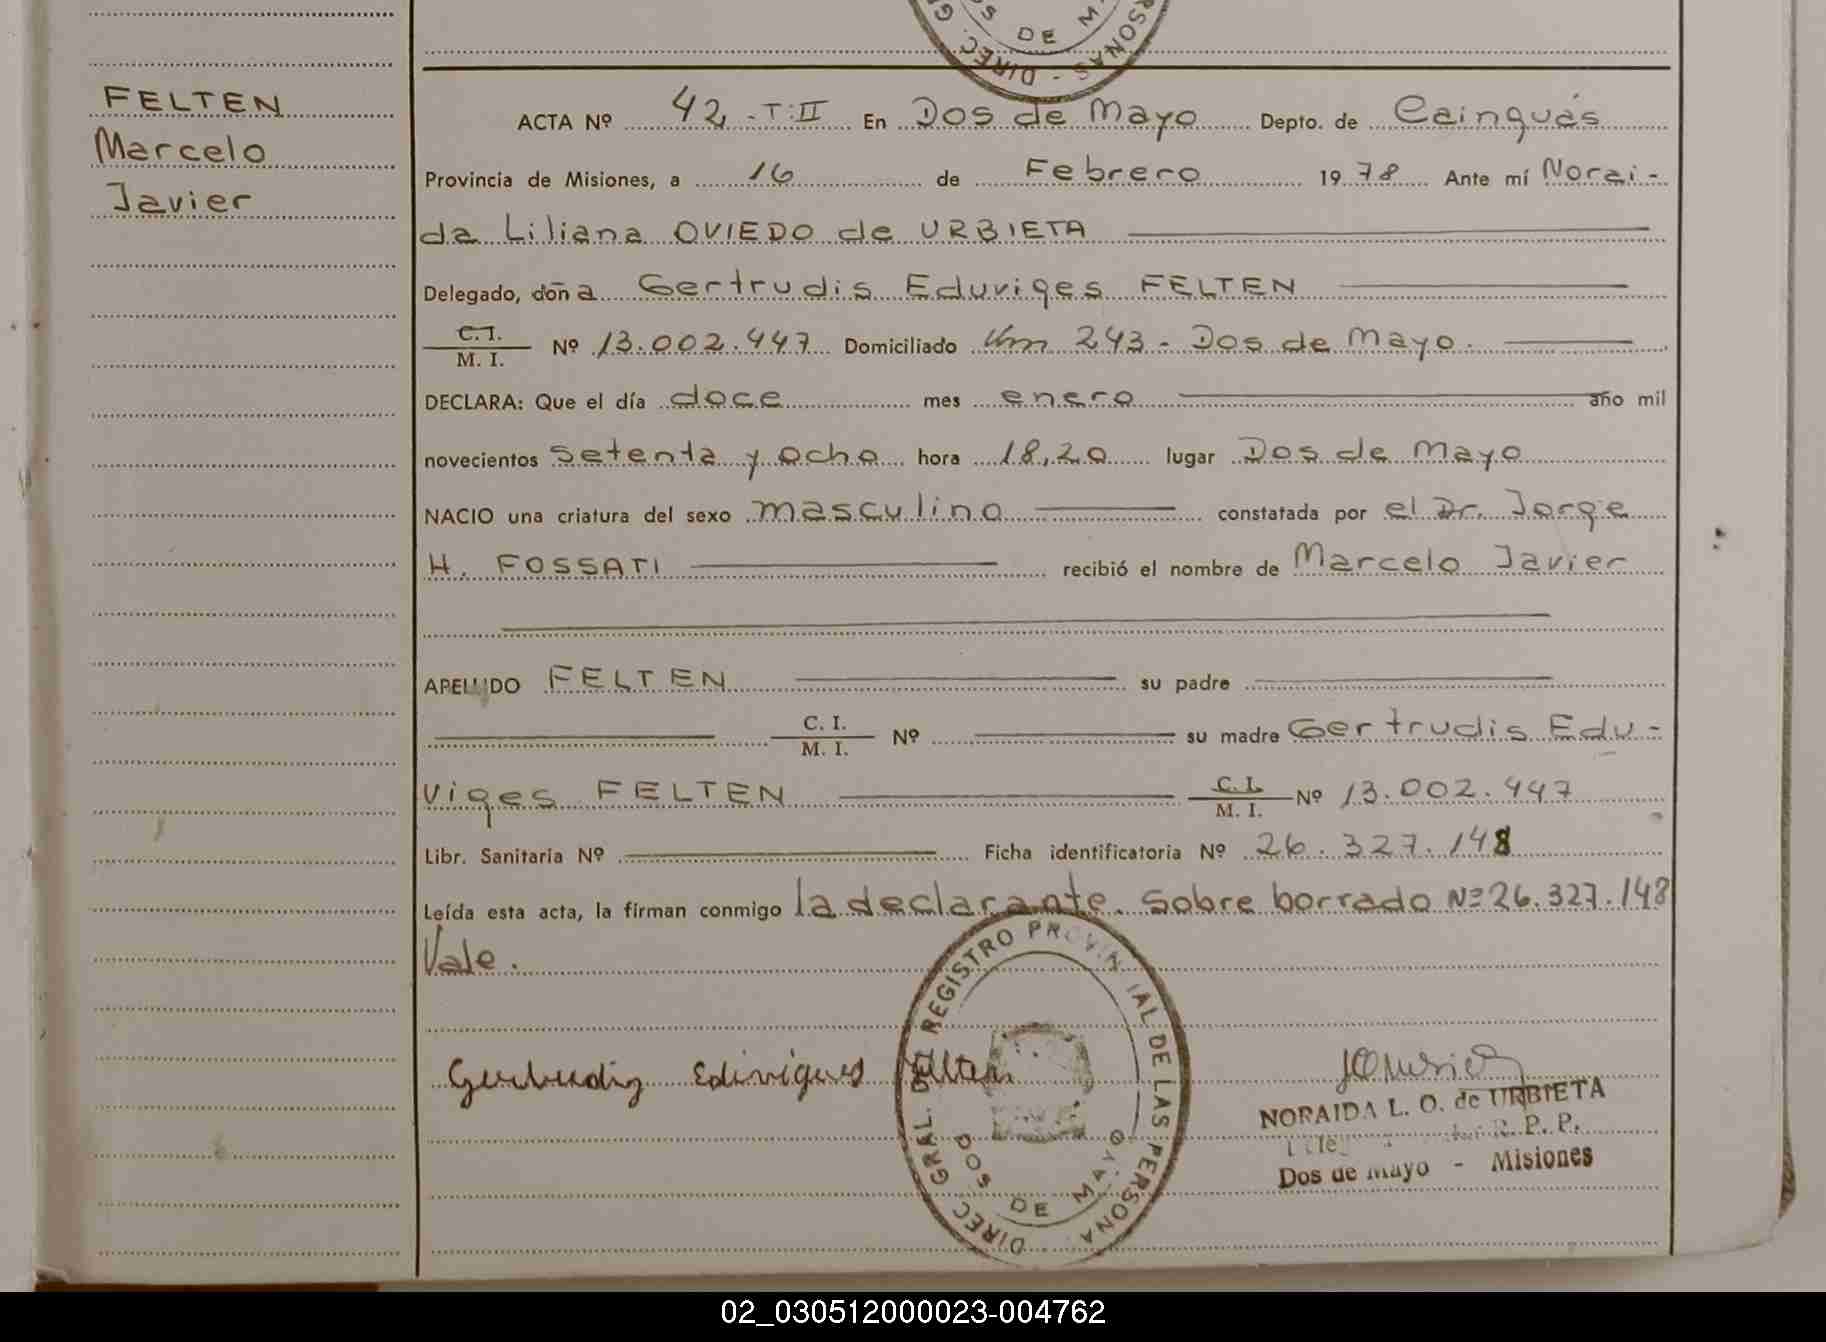 DE MA
DIREC. G
ERSONAS
FELTEN
Marcelo
Javier
ACTA Nº 42 - T: II En Dos de Mayo Depto. de Cainguás
Provincia de Misiones, a 16 de Febrero 1978 Ante mí Norai-
da Liliana OVIEDO de URBIETA
Delegado, doña Gertrudis Eduviges FELTEN
C. I. / M. I. Nº 13.002.447 Domiciliado Km 243 - Dos de Mayo.
DECLARA: Que el día doce mes enero año mil
novecientos setenta y ocho hora 18,20 lugar Dos de Mayo
NACIO una criatura del sexo masculino constatada por el Dr. Jorge
H. FOSSATI recibió el nombre de Marcelo Javier
APELLIDO FELTEN su padre
C. I. / M. I. Nº su madre Gertrudis Edu-
viges FELTEN C. I. / M. I. Nº 13.002.447
Libr. Sanitaria Nº Ficha identificatoria Nº 26.327.148
Leída esta acta, la firman conmigo la declarante. Sobre borrado Nº 26.327.148
Vale.
DIREC. GRAL. DEL REGISTRO PROVINCIAL DE LAS PERSONAS
DOS DE MAYO
Gertrudiz Edivigues Felten
NORAIDA L. O. de URBIETA
R. P. P.
Dos de Mayo - Misiones
02_030512000023-004762